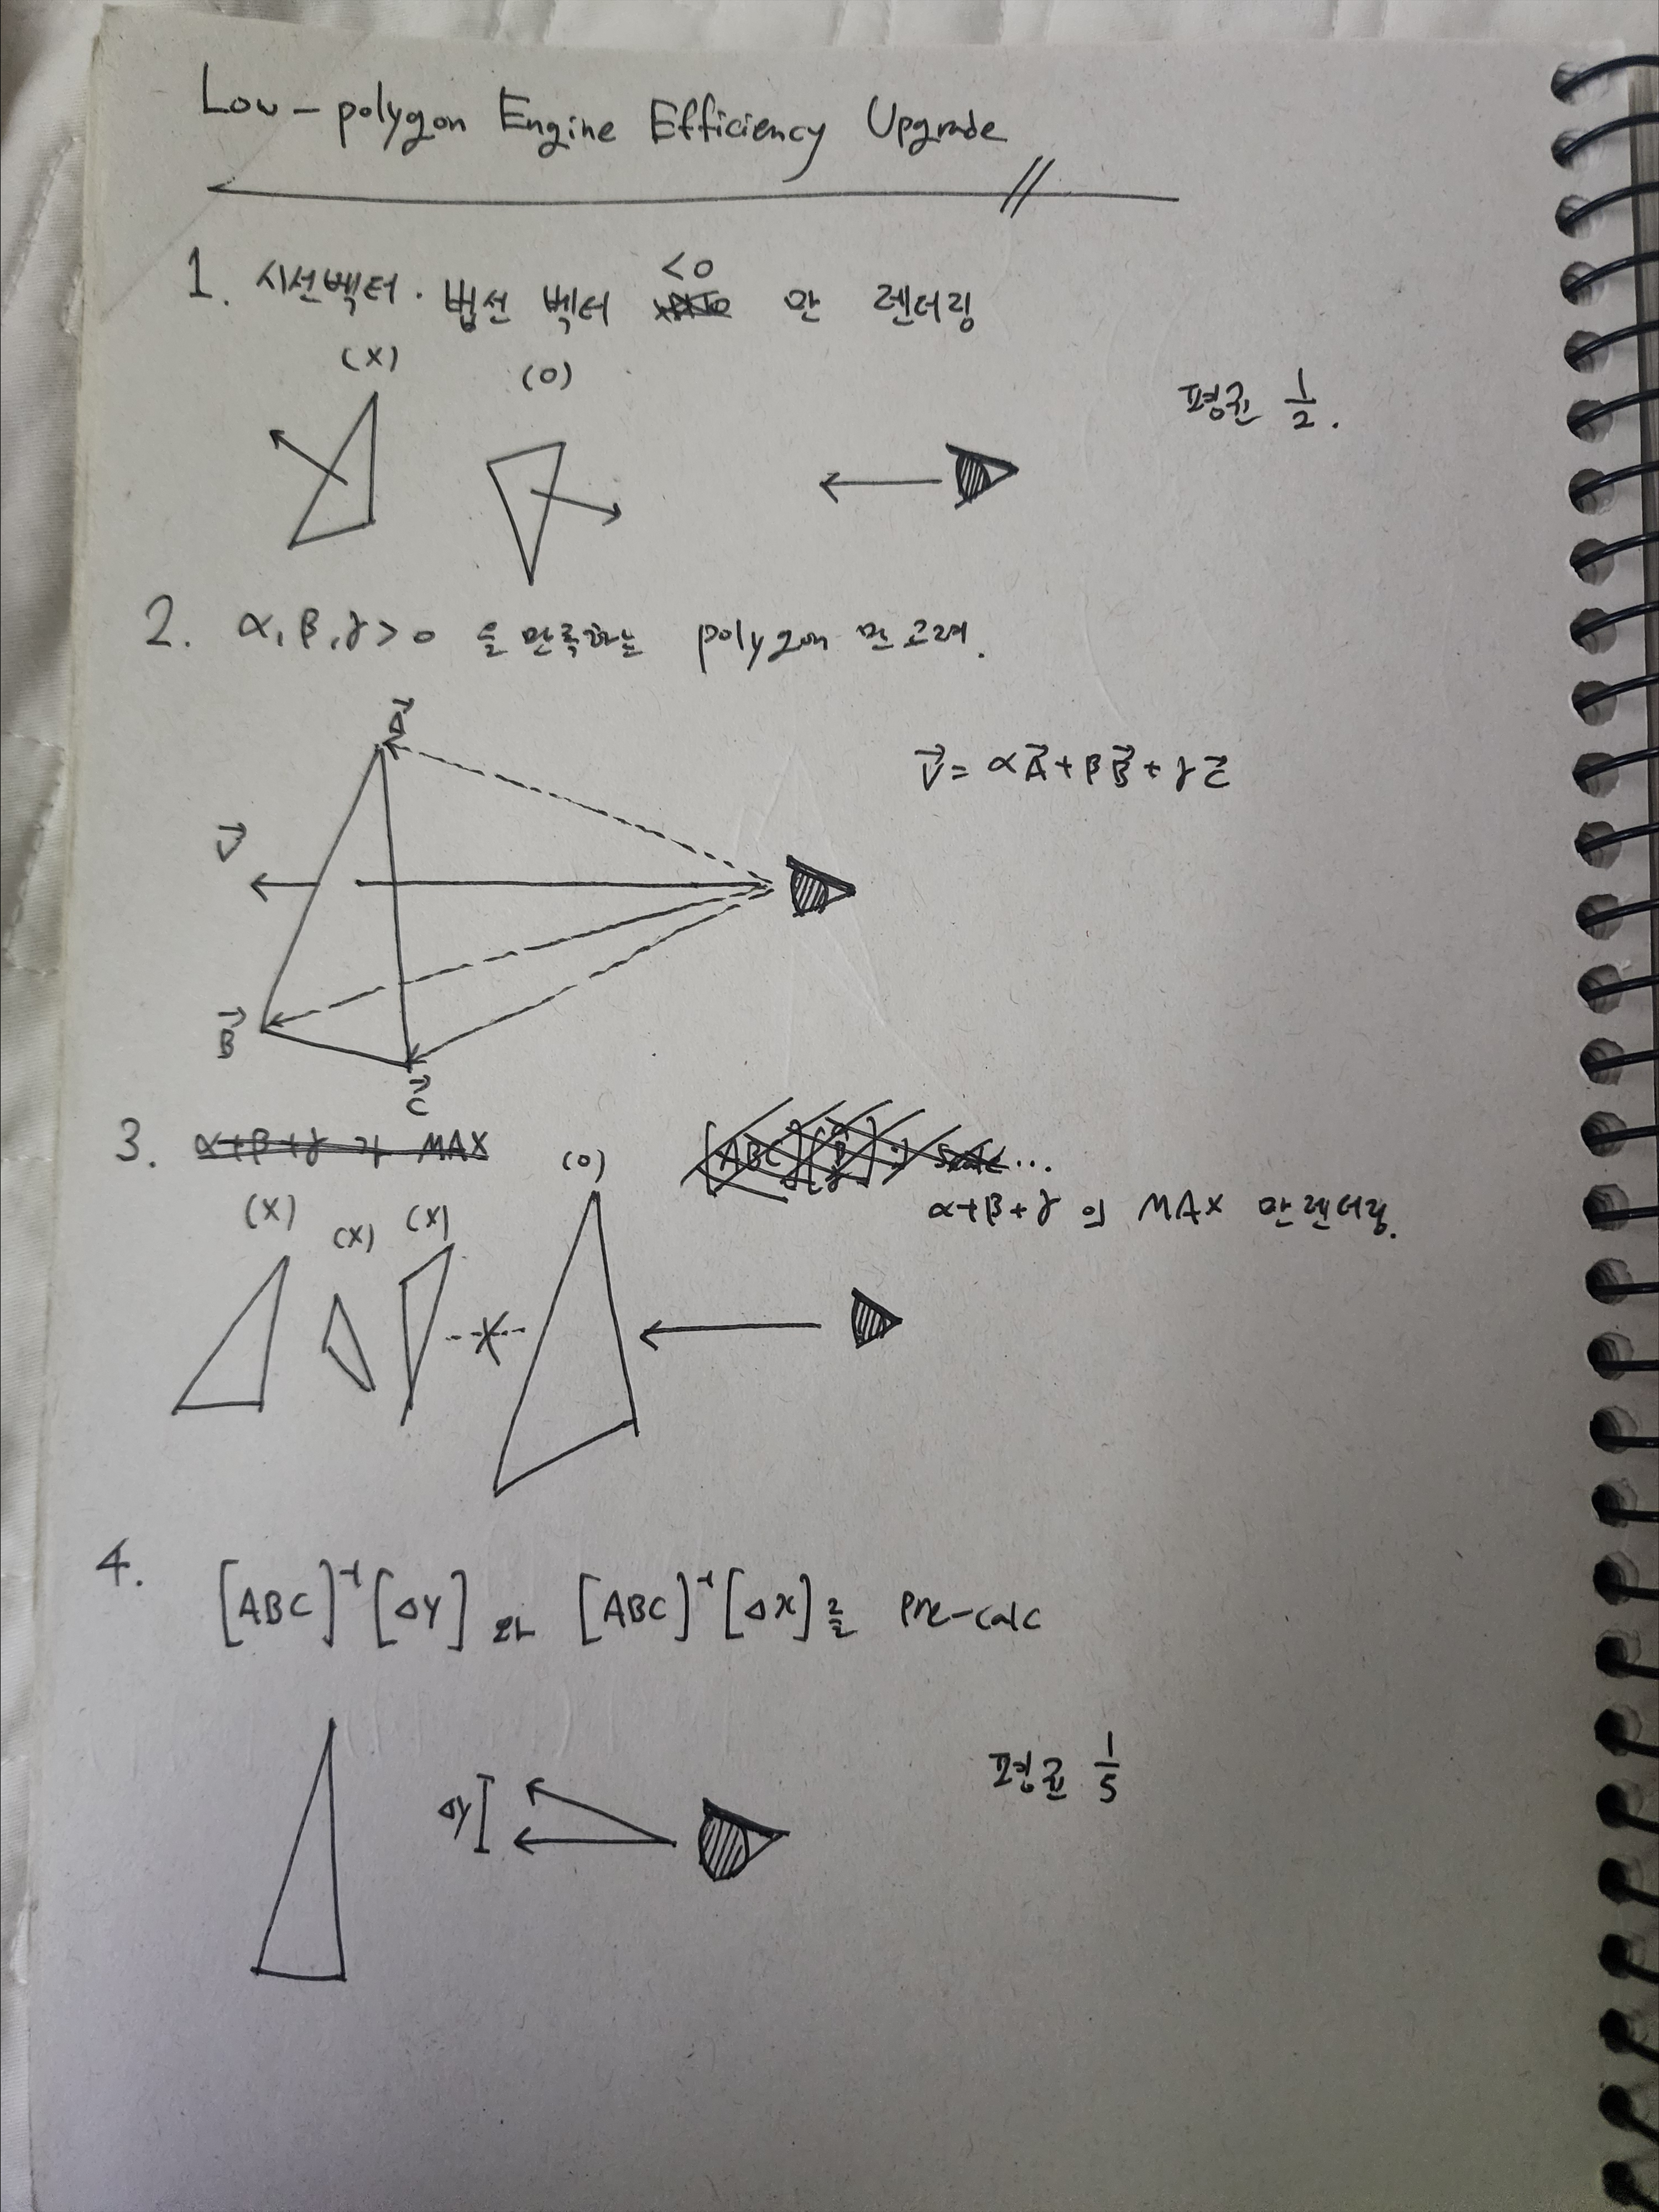 Low-polygon Engine Efficiency Upgrade
1. 시선벡터 · 법선 벡터 <0 만 렌더링
(X)
(O)
평균 1/2.
2. α, β, γ > 0 을 만족하는 polygon 만 고려.
A⃗
V⃗ = αA⃗ + βB⃗ + γC⃗
V⃗
B⃗
C⃗
3. α+β+γ 가 MAX
(X)
(X)
(X)
(O)
α+β+γ 의 MAX 만 렌더링.
4. [ABC]⁻¹[ΔY] 와 [ABC]⁻¹[ΔX]를 Pre-calc
ΔY
평균 1/5